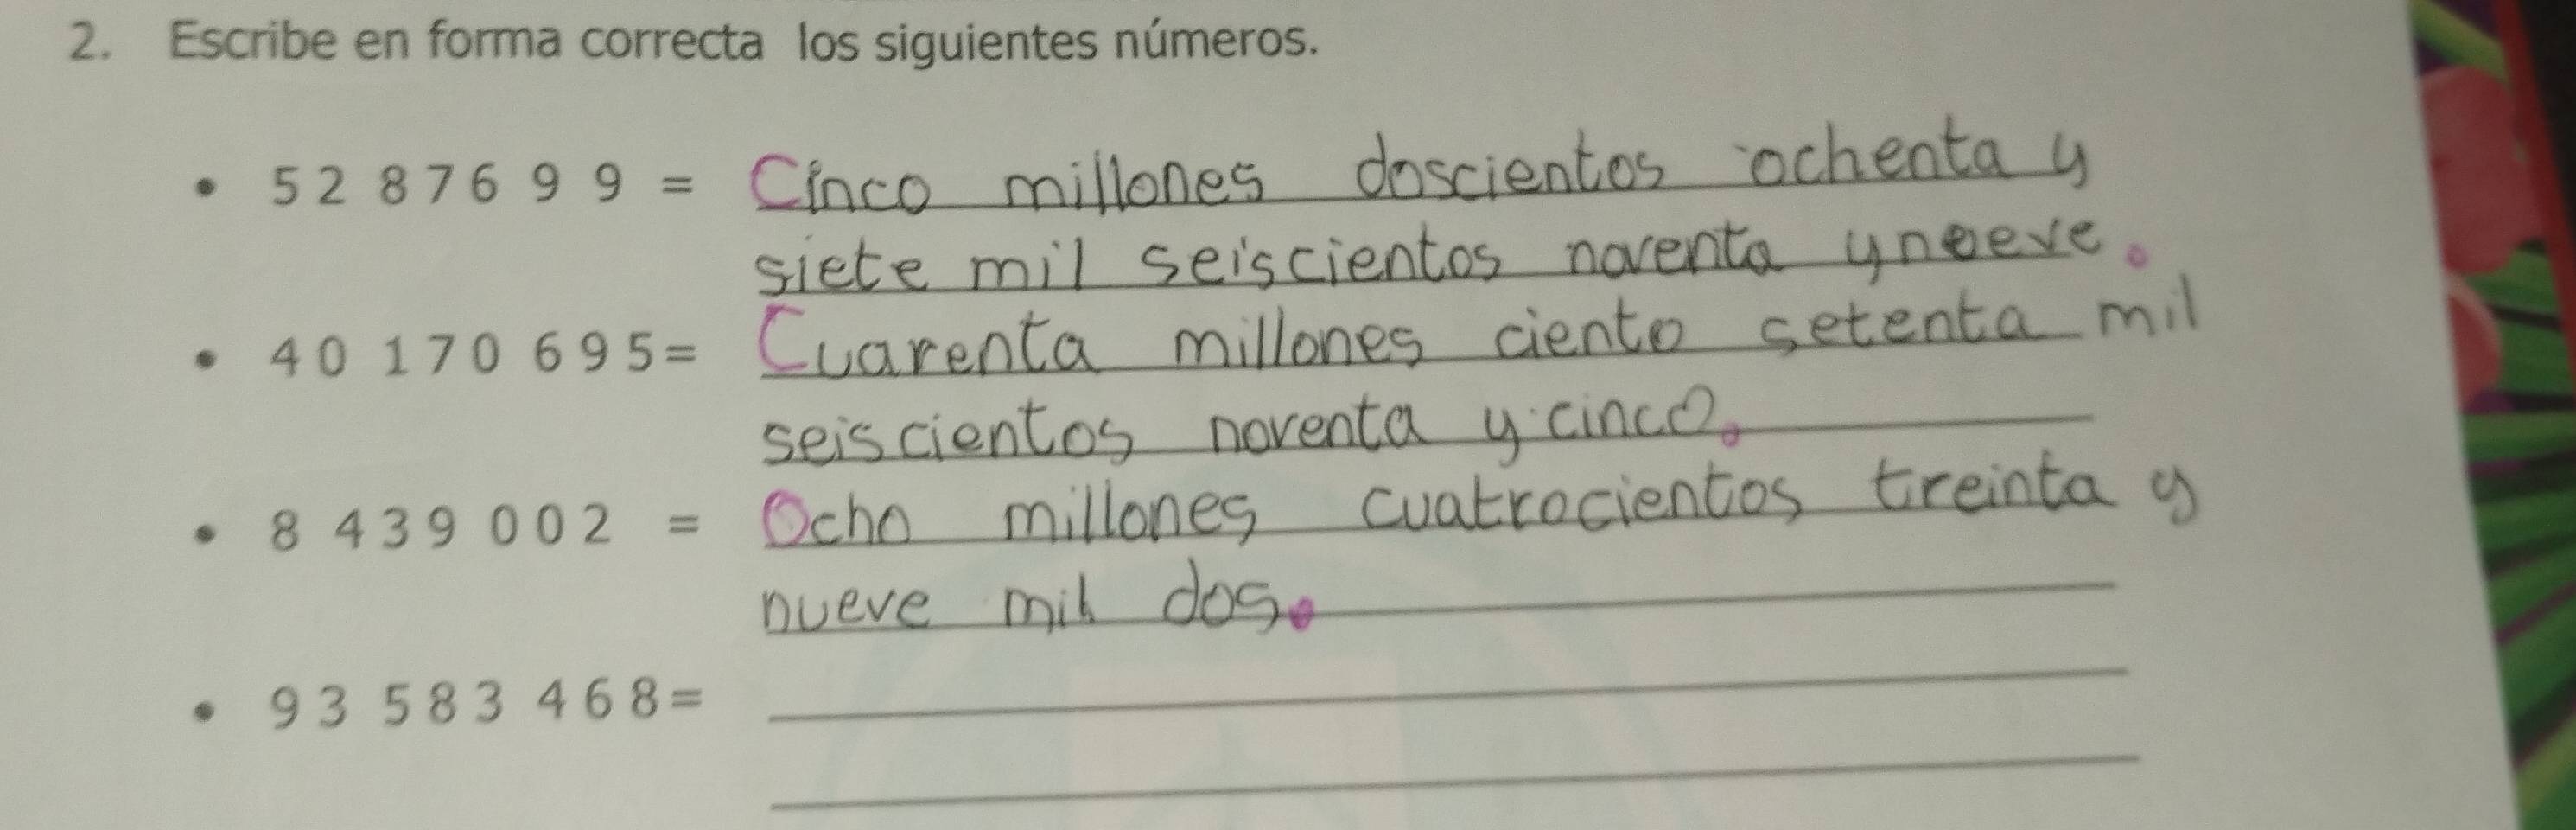 2. Escribe en forma correcta los siguientes números.
• 5 2 8 7 6 9 9 = Cinco millones doscientos ochenta y
siete mil seiscientos noventa y neeve.
• 4 0 1 7 0 6 9 5 = Cuarenta millones ciento setenta mil
seiscientos noventa y cinco.
• 8 4 3 9 0 0 2 = Ocho millones cuatrocientos treinta y
nueve mil dos.
• 9 3 5 8 3 4 6 8 =